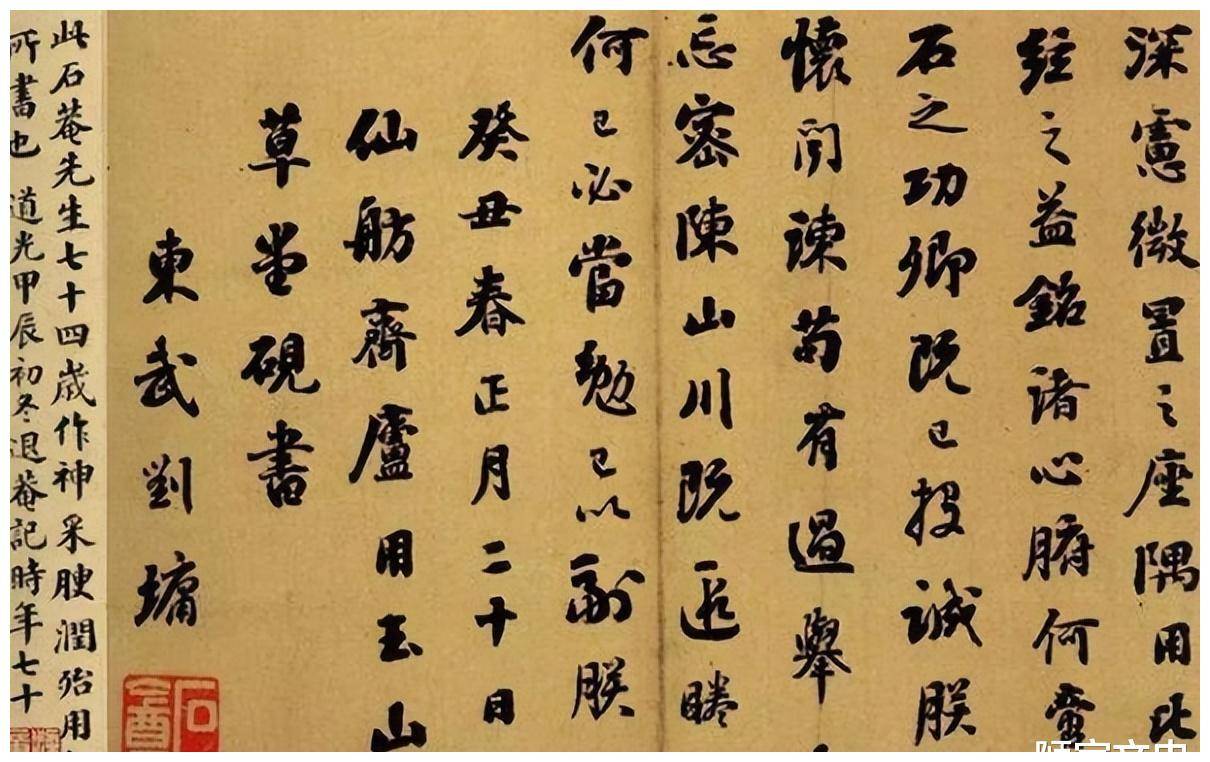 深慮微置之座隅用比
弦之益銘諸心腑何啻
石之功卿既已投誠朕
懷聞諫苟有過舉
忘密陳山川既遐睠
何已必當勉已以副朕
癸丑春正月二十日
仙舫齋廬用玉山
草堂硯書
東武劉墉
此石菴先生七十四歲作神采腴潤殆用
所書也 道光甲辰初冬退菴記時年七十